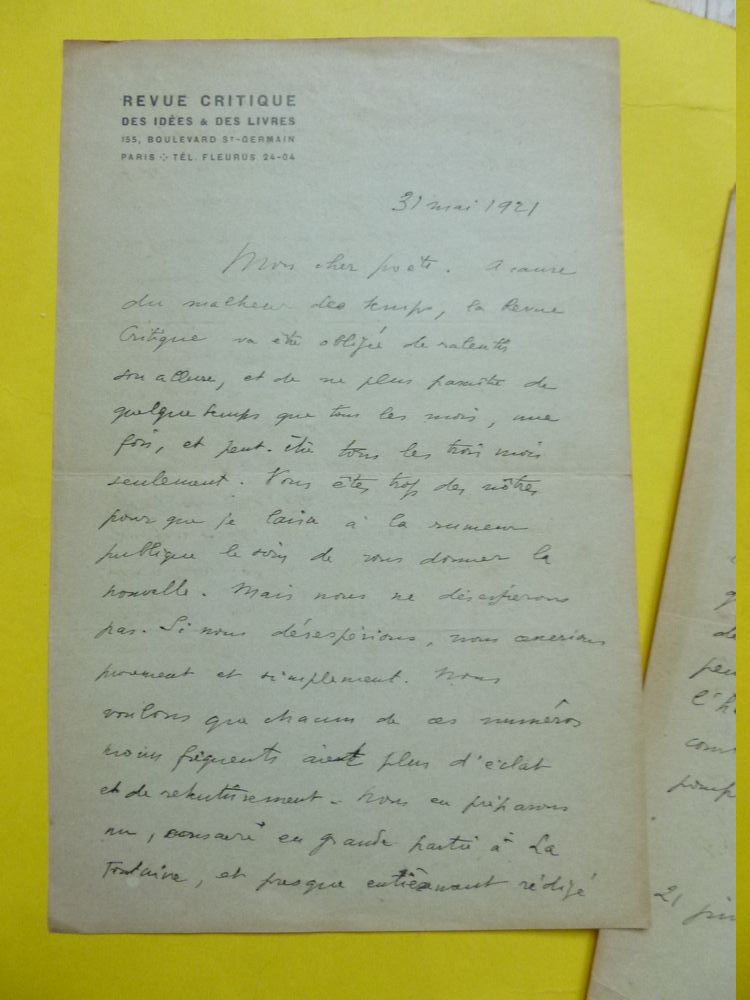 REVUE CRITIQUE
DES IDÉES & DES LIVRES
155, BOULEVARD ST-GERMAIN
PARIS ⁘ TÉL. FLEURUS 24-04
31 mai 1921
Mon cher poète. A cause
du malheur des temps, la Revue
Critique va être obligée de ralentir
son allure, et de ne plus paraître de
quelque temps que tous les mois, une
fois, et peut-être tous les trois mois
seulement. Vous êtes trop des nôtres
pour que je laisse à la rumeur
publique le soin de vous donner la
nouvelle. Mais nous ne désespérons
pas. Si nous désespérions, nous cesserions
purement et simplement. Nous
voulons que chacun de ces numéros
moins fréquents ait plus d'éclat
et de retentissement. Nous en préparons
un, consacré en grande partie à La
Fontaine, et presque entièrement rédigé
de
l'h
21